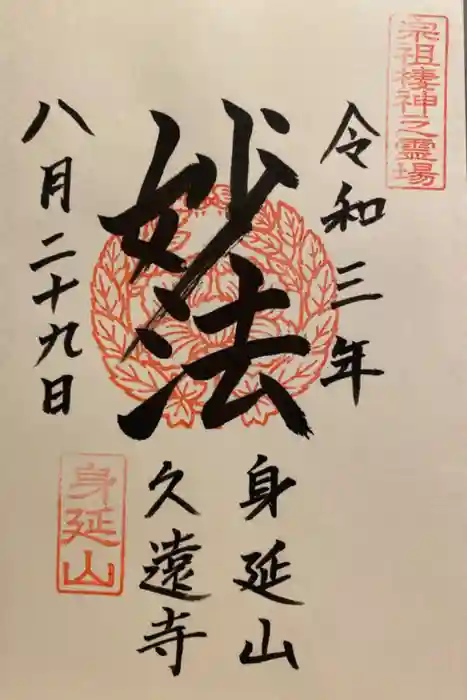 宗祖棲神之霊場
令和三年
妙法
身延山
久遠寺
八月二十九日
身延山